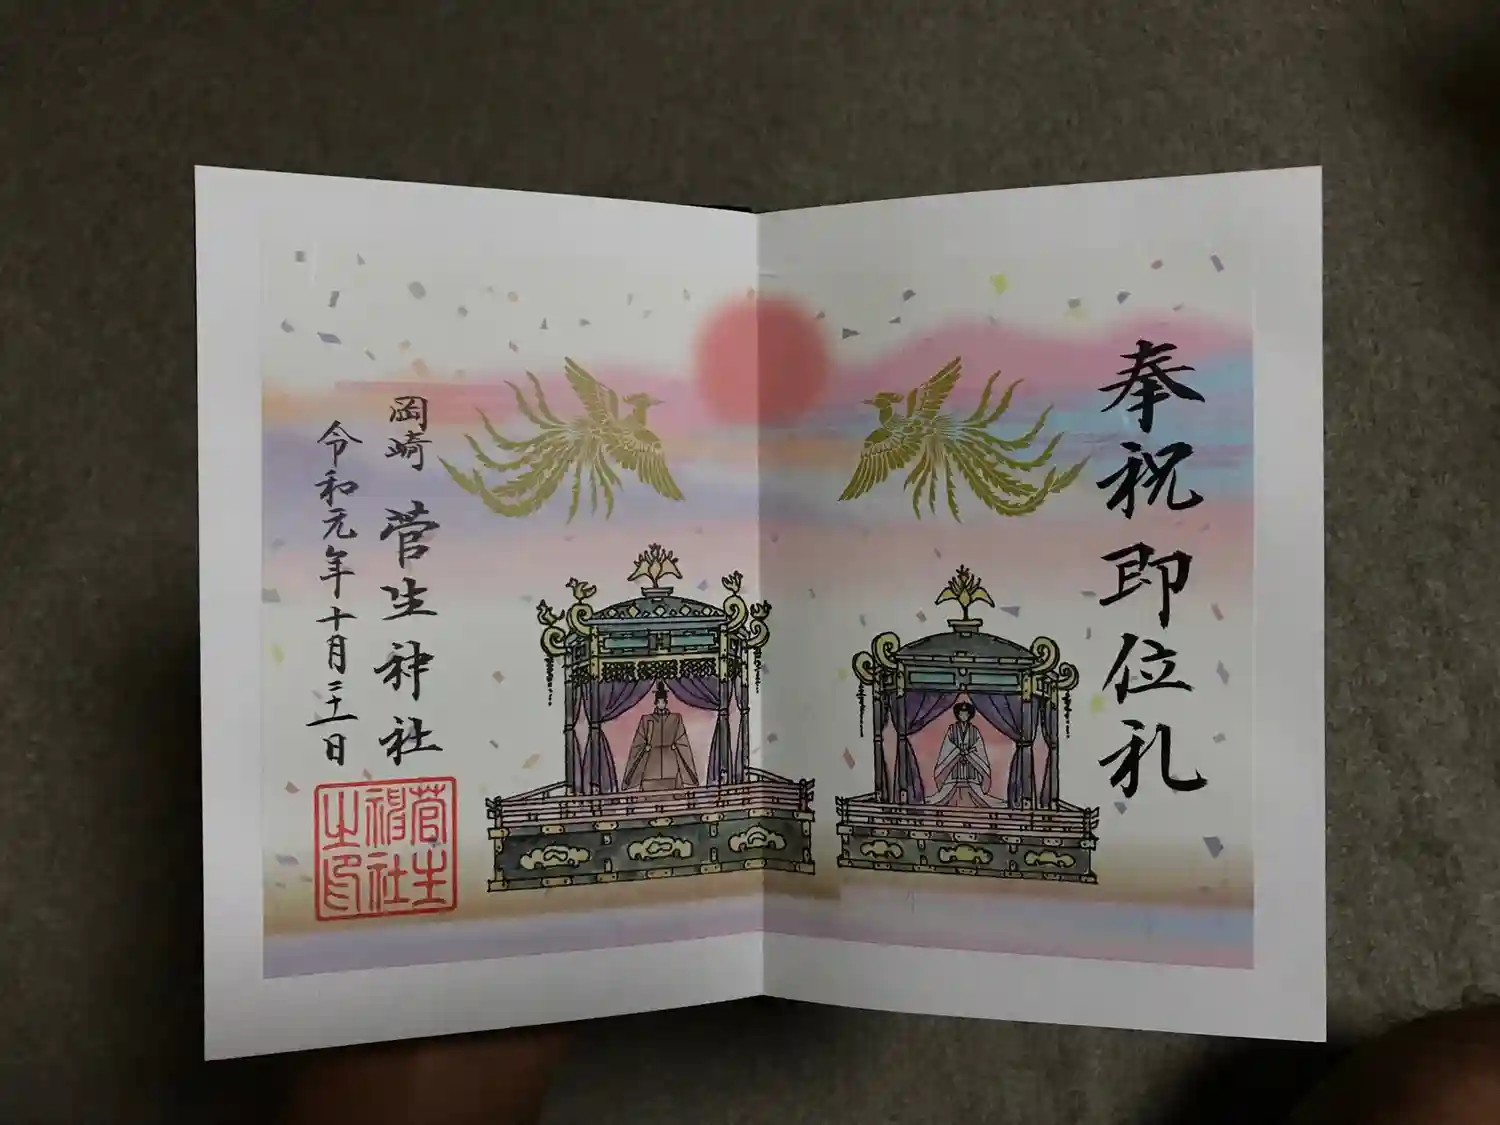 奉祝即位礼
岡崎 菅生神社
令和元年十月三十一日
菅生
神社
之印